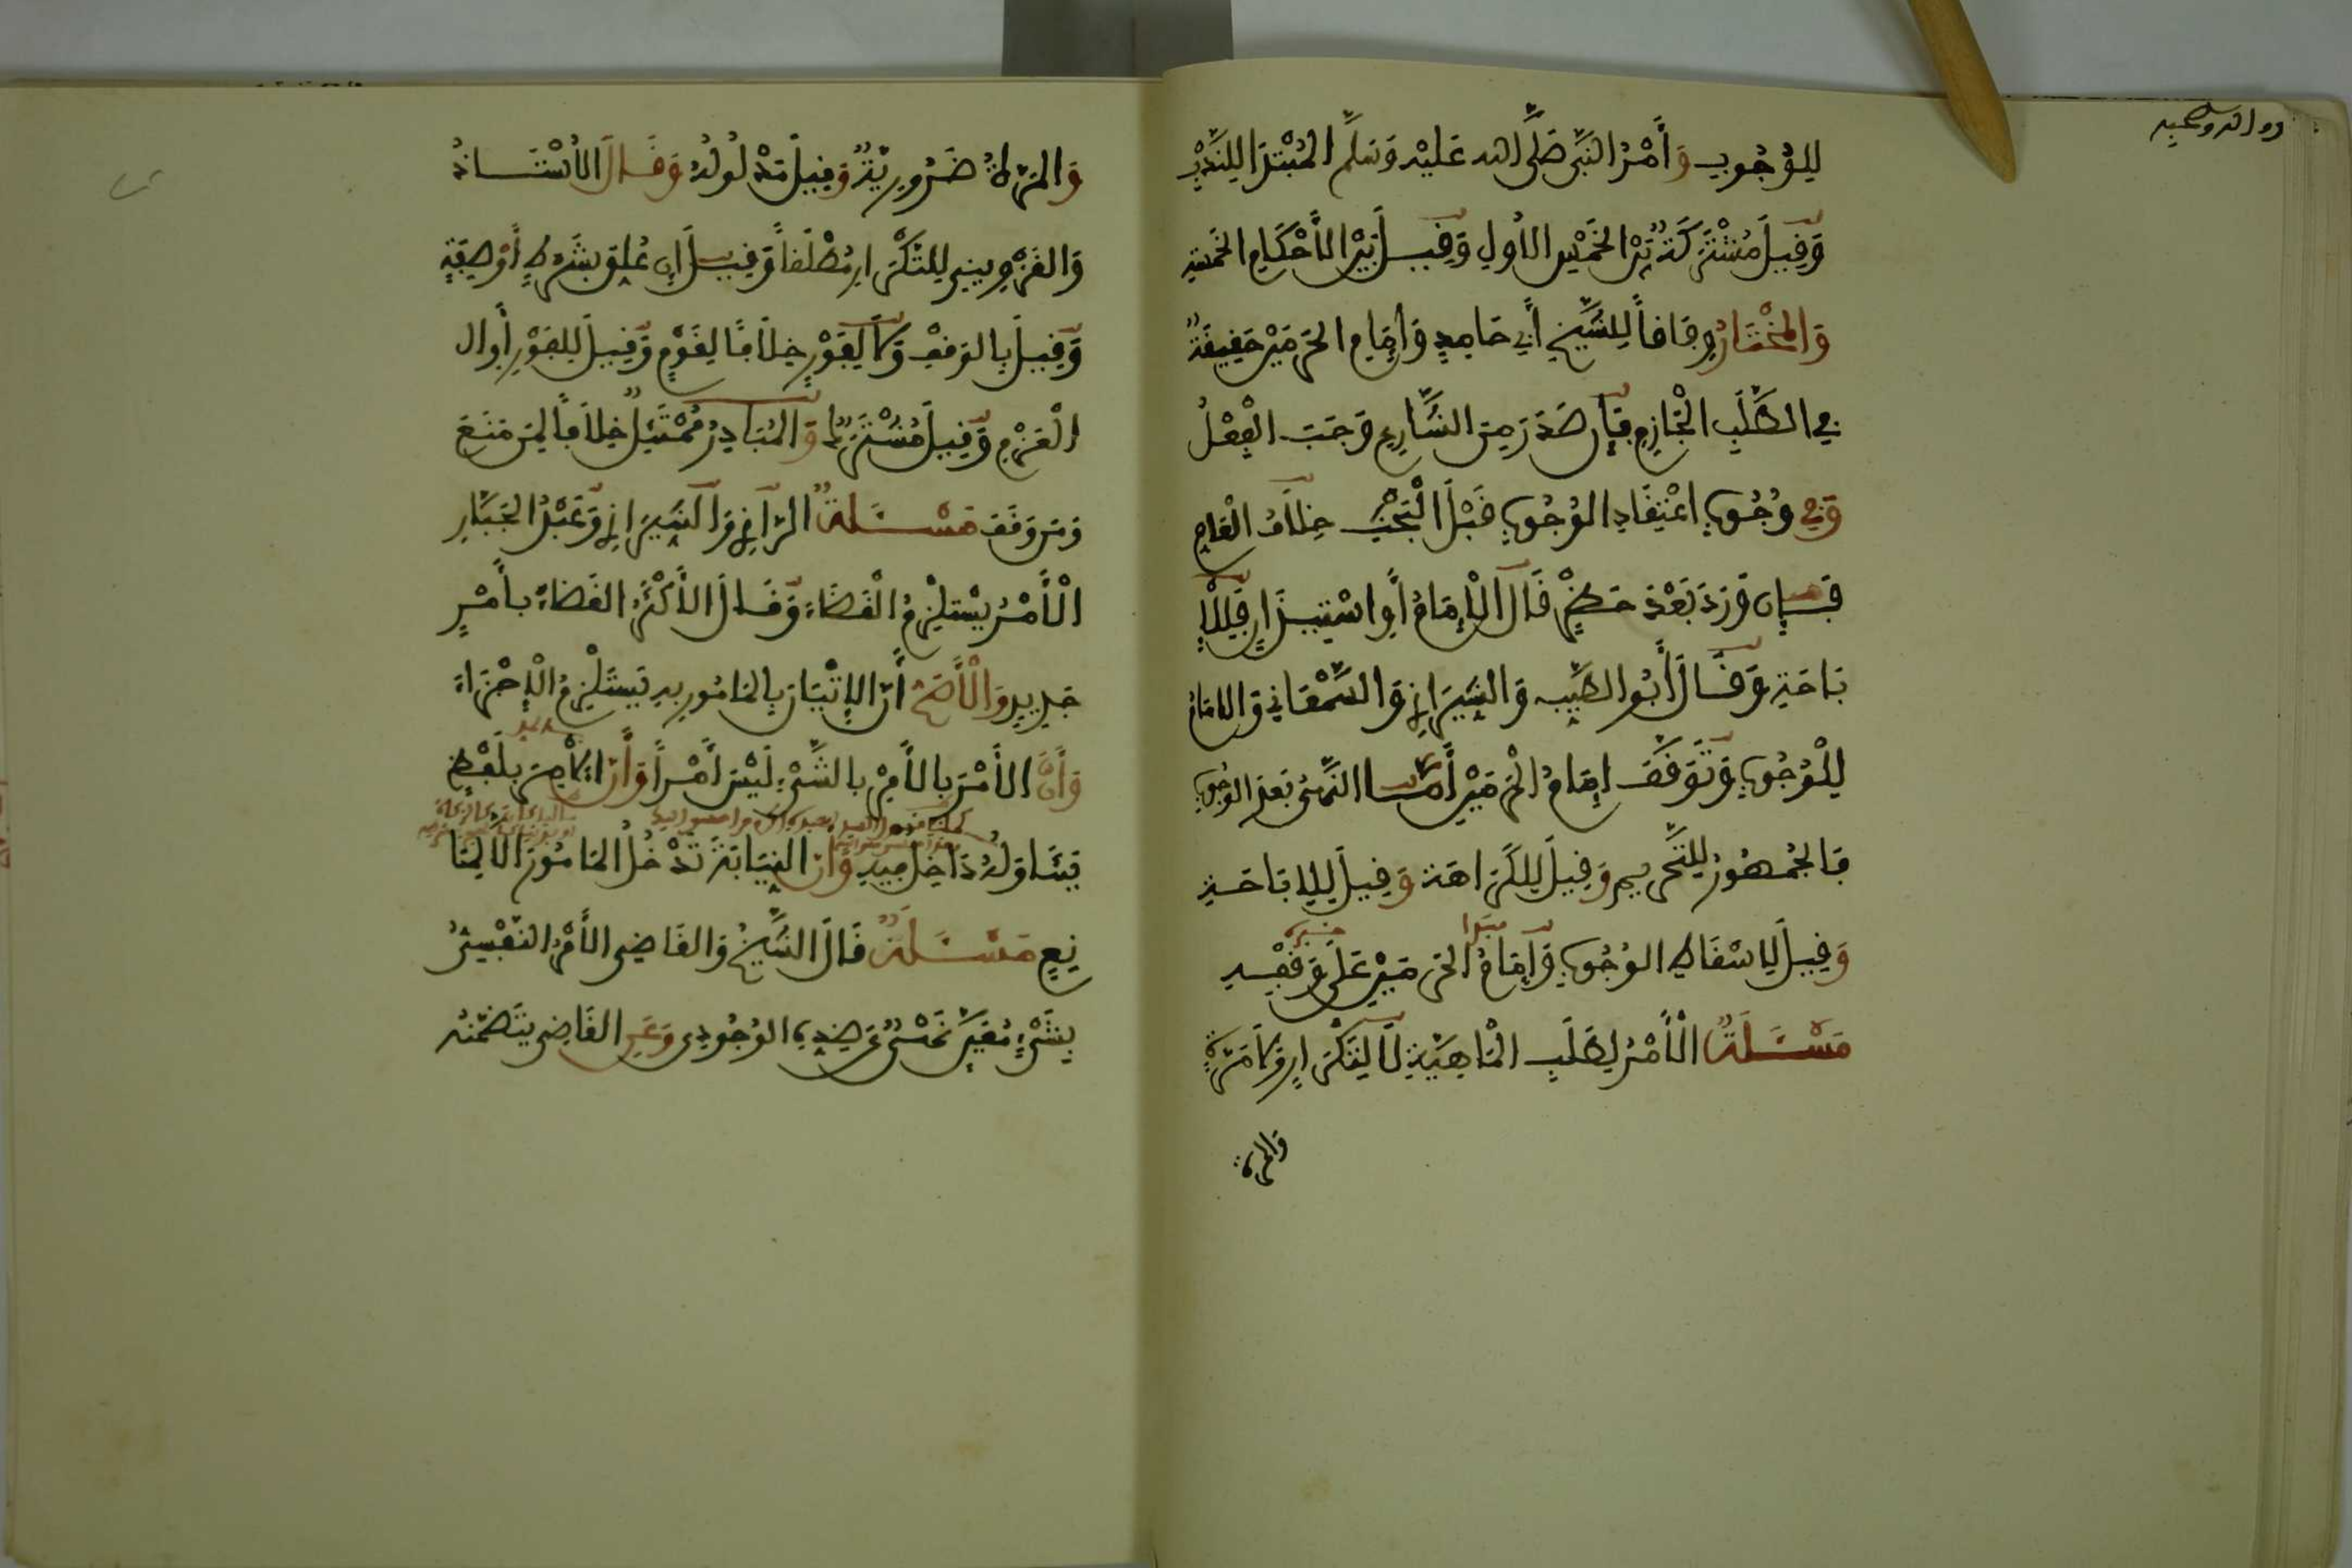 للوجوب وأمر النبي صلى الله عليه وسلم المبتدأ للندب
وقيل مشتركة بين الخمس الأول وقيل بين الأحكام الخمسة
والمختار وفاقا للشيخ أبي حامد وإمام الحرمين حقيقة
في الطلب الجازم فإن صدر من الشارع وجب الفعل
وفي وجوب اعتقاد الوجوب قبل البحث خلاف العام
فإن ورد بعد حظر قال الإمام أو استيذان فللإ
باحة وقال أبو الطيب والشيرازي والسمعاني والإمام
للوجوب وتوقف إمام الحرمين أما النهي بعد الوجوب
فالجمهور للتحريم وقيل للكراهة وقيل للإباحة
وقيل لإسقاط الوجوب وإمام الحرمين على وقفه
مسئلة الأمر لطلب الماهية لا لتكرار ولا مرة
والمرة
والمرة ضرورية وقيل مدلوله وقال الأستاذ
والقزويني للتكرار مطلقا وقيل إن علق بشرط أو صفة
وقيل بالوقف ولا لفور خلافا لقوم وقيل للفور أو ال
العزم وقيل مشترك والمبادر ممتثل خلافا لمن منع
ومن وقف مسئلة الرازي والشيرازي وعبد الجبار
الأمر يستلزم القضاء وقال الأكثر القضاء بأمر
جديد والأصح أن الإتيان بالمامور به يستلزم الإجزاء
وأن الأمر بالأمر بالشيء ليس أمرا وأن الآمر بلفظ
يتناوله داخل فيه وأن النيابة تدخل المامور إلا لما
نع مسئلة قال الشيخ والقاضي الأمر النفسي
بشيء معين نهي عن ضده الوجودي وعن القاضي يتضمنه